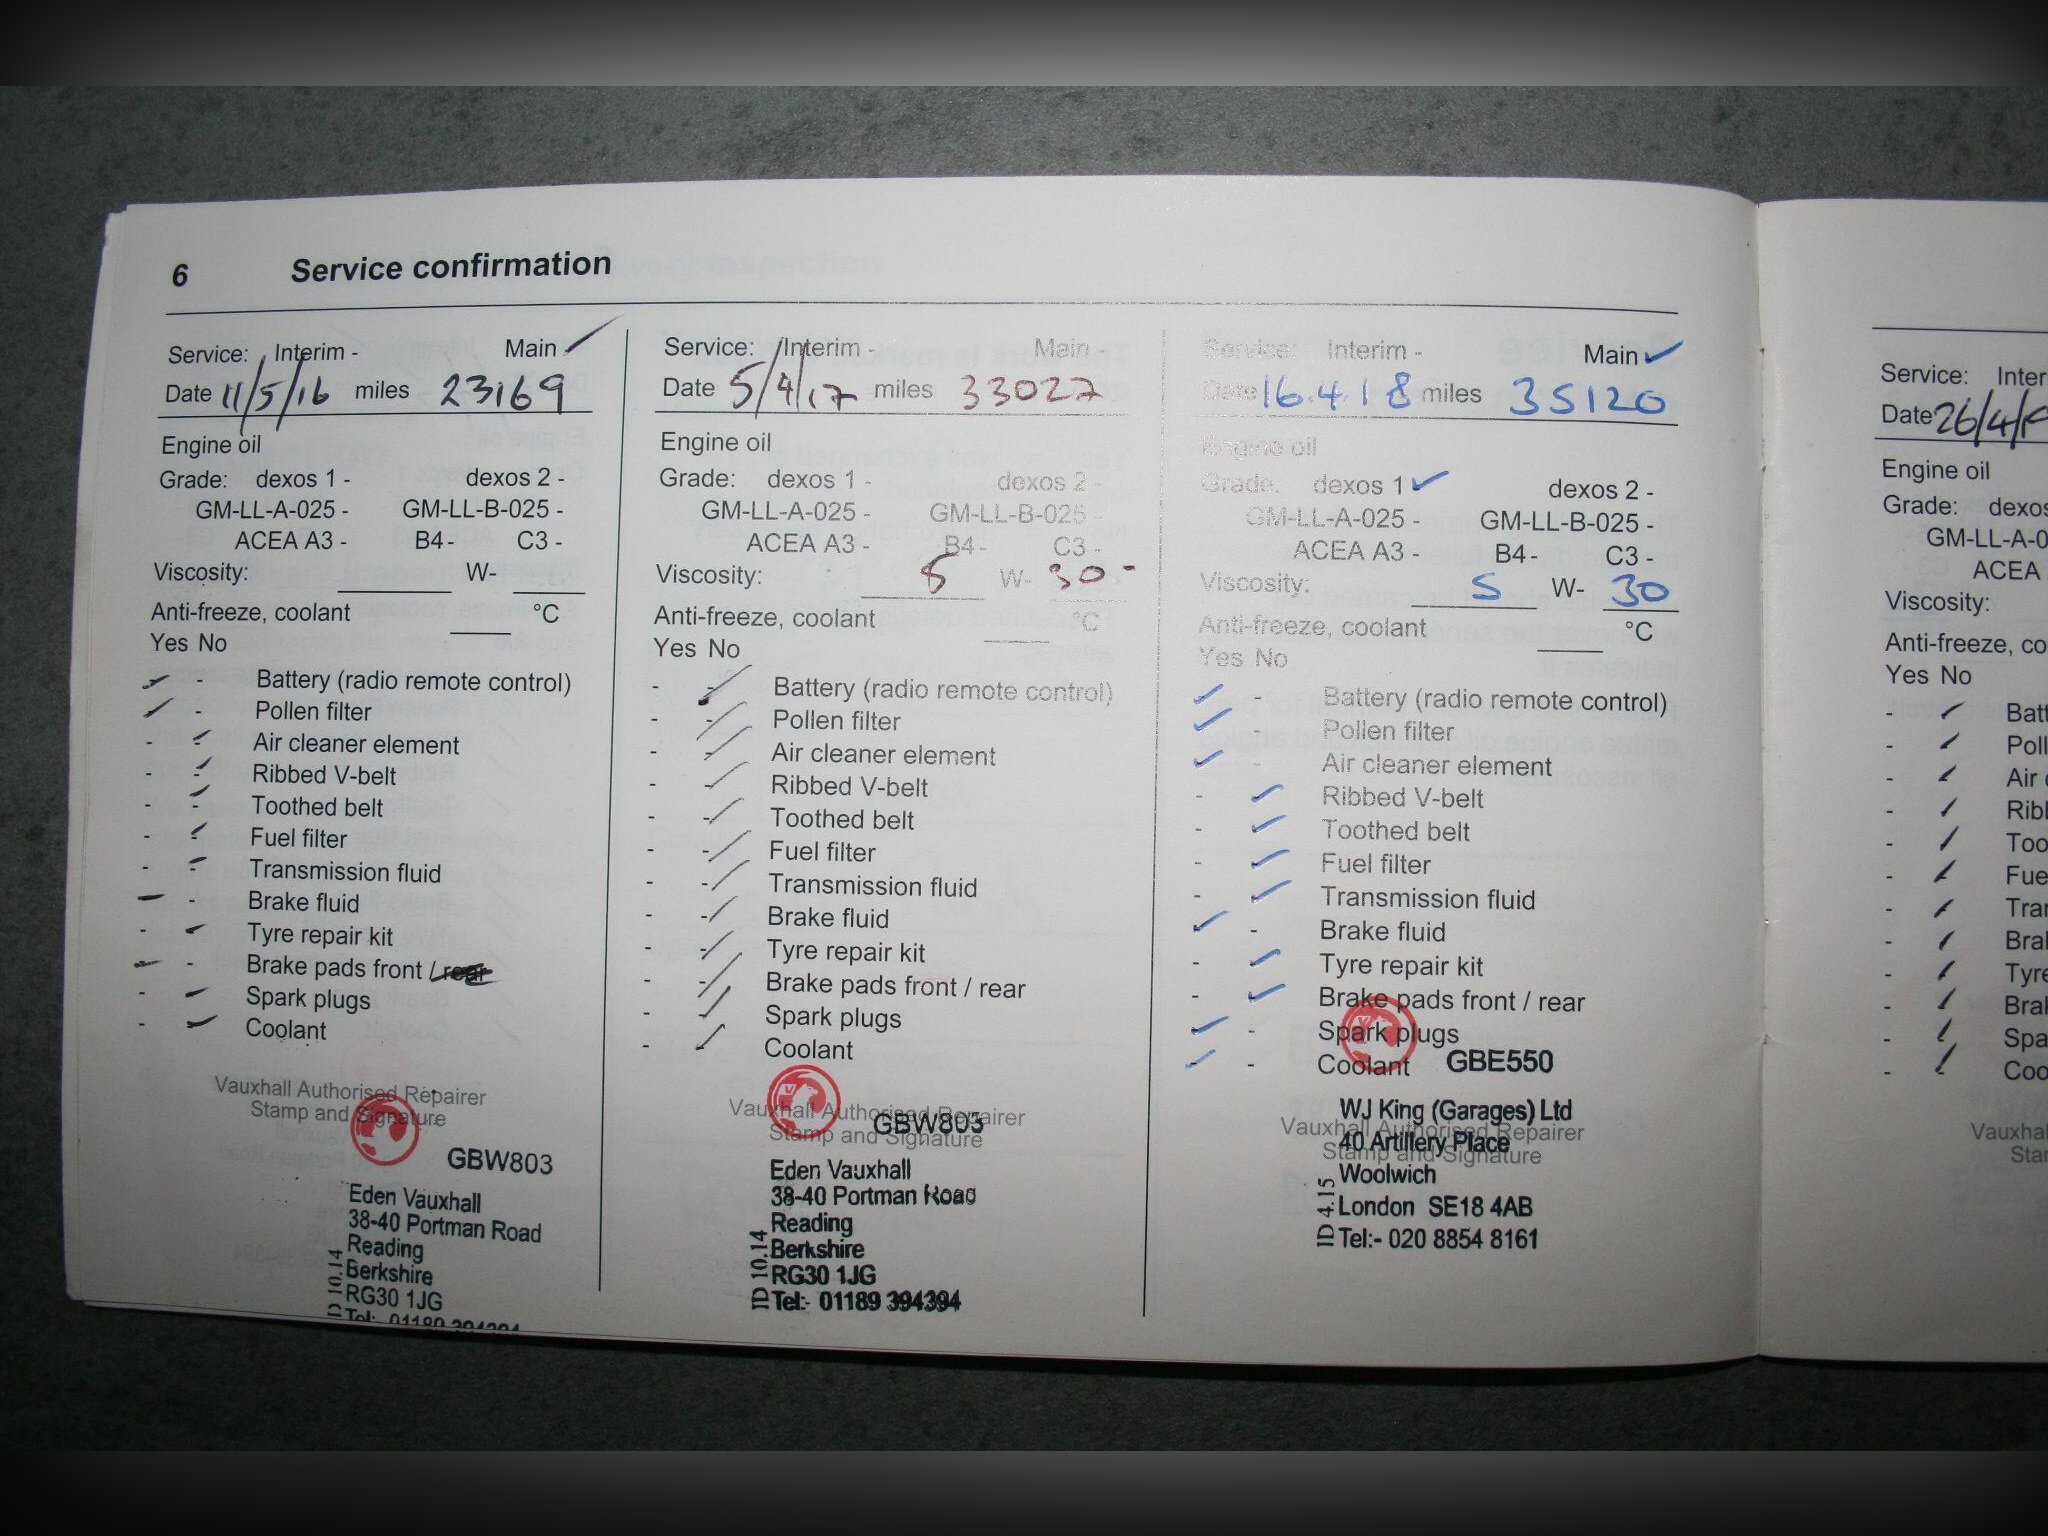 6 Service confirmation
Service: Interim - Main -
Date 11/5/16 miles 23169
Engine oil
Grade: dexos 1 - dexos 2 -
GM-LL-A-025 - GM-LL-B-025 -
ACEA A3 - B4 - C3 -
Viscosity: W-
Anti-freeze, coolant °C
Yes No
- - Battery (radio remote control)
- - Pollen filter
- - Air cleaner element
- - Ribbed V-belt
- - Toothed belt
- - Fuel filter
- - Transmission fluid
- - Brake fluid
- - Tyre repair kit
- - Brake pads front / rear
- - Spark plugs
- - Coolant
Vauxhall Authorised Repairer
Stamp and Signature
GBW803
Eden Vauxhall
38-40 Portman Road
Reading
Berkshire
RG30 1JG
Tel:- 01189 394394
ID 10.14
Service: Interim - Main -
Date 5/4/17 miles 33027
Engine oil
Grade: dexos 1 - dexos 2 -
GM-LL-A-025 - GM-LL-B-025 -
ACEA A3 - B4 - C3 -
Viscosity: 5 W- 30-
Anti-freeze, coolant °C
Yes No
- - Battery (radio remote control)
- - Pollen filter
- - Air cleaner element
- - Ribbed V-belt
- - Toothed belt
- - Fuel filter
- - Transmission fluid
- - Brake fluid
- - Tyre repair kit
- - Brake pads front / rear
- - Spark plugs
- - Coolant
Vauxhall Authorised Repairer
Stamp and Signature
GBW803
Eden Vauxhall
38-40 Portman Road
Reading
Berkshire
RG30 1JG
Tel:- 01189 394394
ID 10.14
Service: Interim - Main
Date 16.4.18 miles 35120
Engine oil
Grade: dexos 1 dexos 2 -
GM-LL-A-025 - GM-LL-B-025 -
ACEA A3 - B4 - C3 -
Viscosity: 5 W- 30
Anti-freeze, coolant °C
Yes No
- - Battery (radio remote control)
- - Pollen filter
- - Air cleaner element
- - Ribbed V-belt
- - Toothed belt
- - Fuel filter
- - Transmission fluid
- - Brake fluid
- - Tyre repair kit
- - Brake pads front / rear
- - Spark plugs
- - Coolant
GBE550
Vauxhall Authorised Repairer
Stamp and Signature
WJ King (Garages) Ltd
40 Artillery Place
Woolwich
London SE18 4AB
Tel:- 020 8854 8161
ID 4.15
Service: Inter
Date 26/4/1
Engine oil
Grade: dexos
GM-LL-A-0
ACEA
Viscosity:
Anti-freeze, co
Yes No
- - Batt
- - Poll
- - Air c
- - Ribb
- - Too
- - Fue
- - Tran
- - Bral
- - Tyre
- - Brak
- - Spa
- - Coo
Vauxha
Star